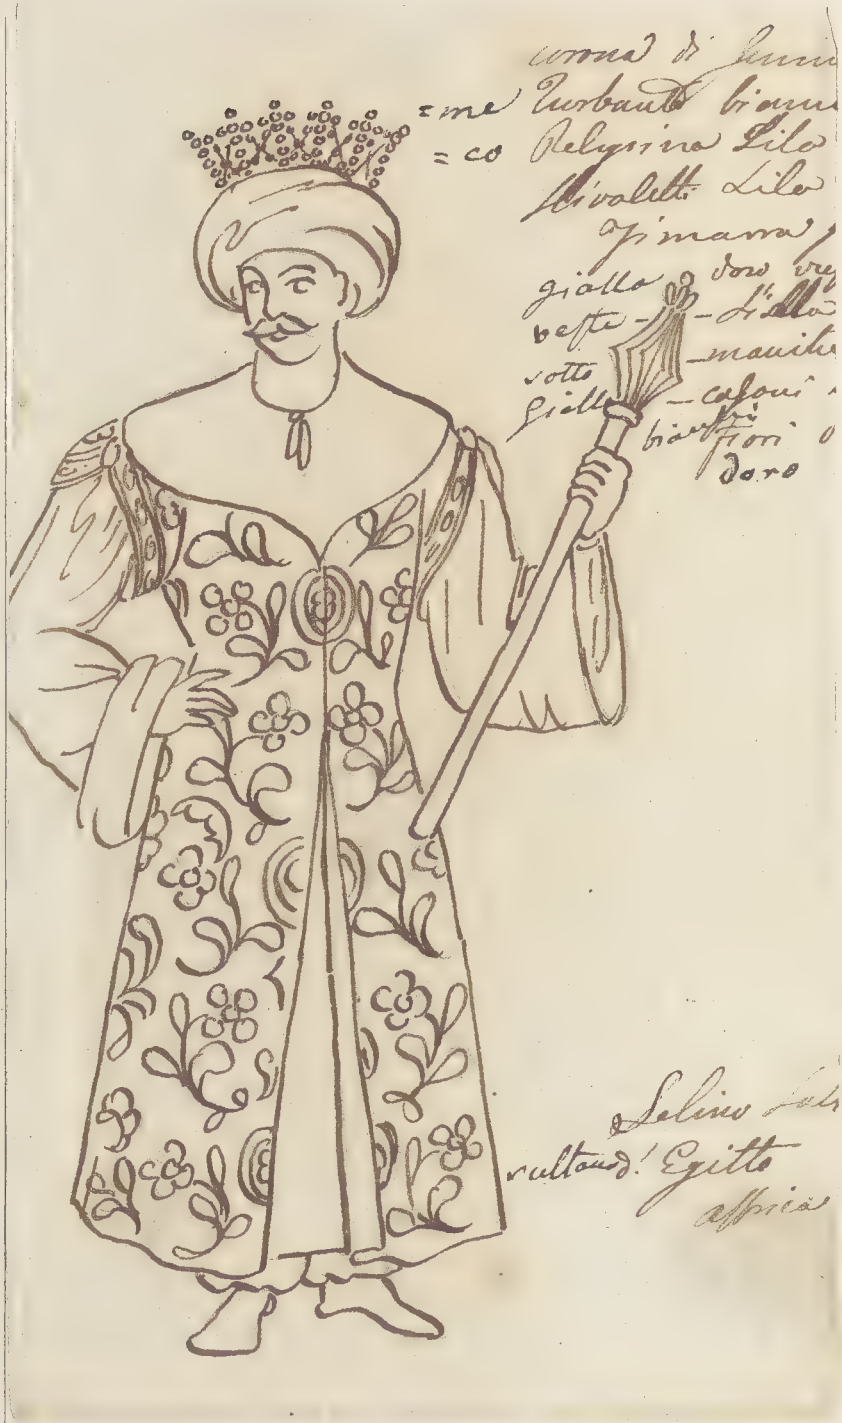 corona di
=me Turbante bian
=co Lila
Stivaletti Lila
Zimarra
gialla doro
veste - - stella
sotto - manich
gialla - calsoni
bianchi fiori
doro
Selino
sultano d' Egitto
affrica